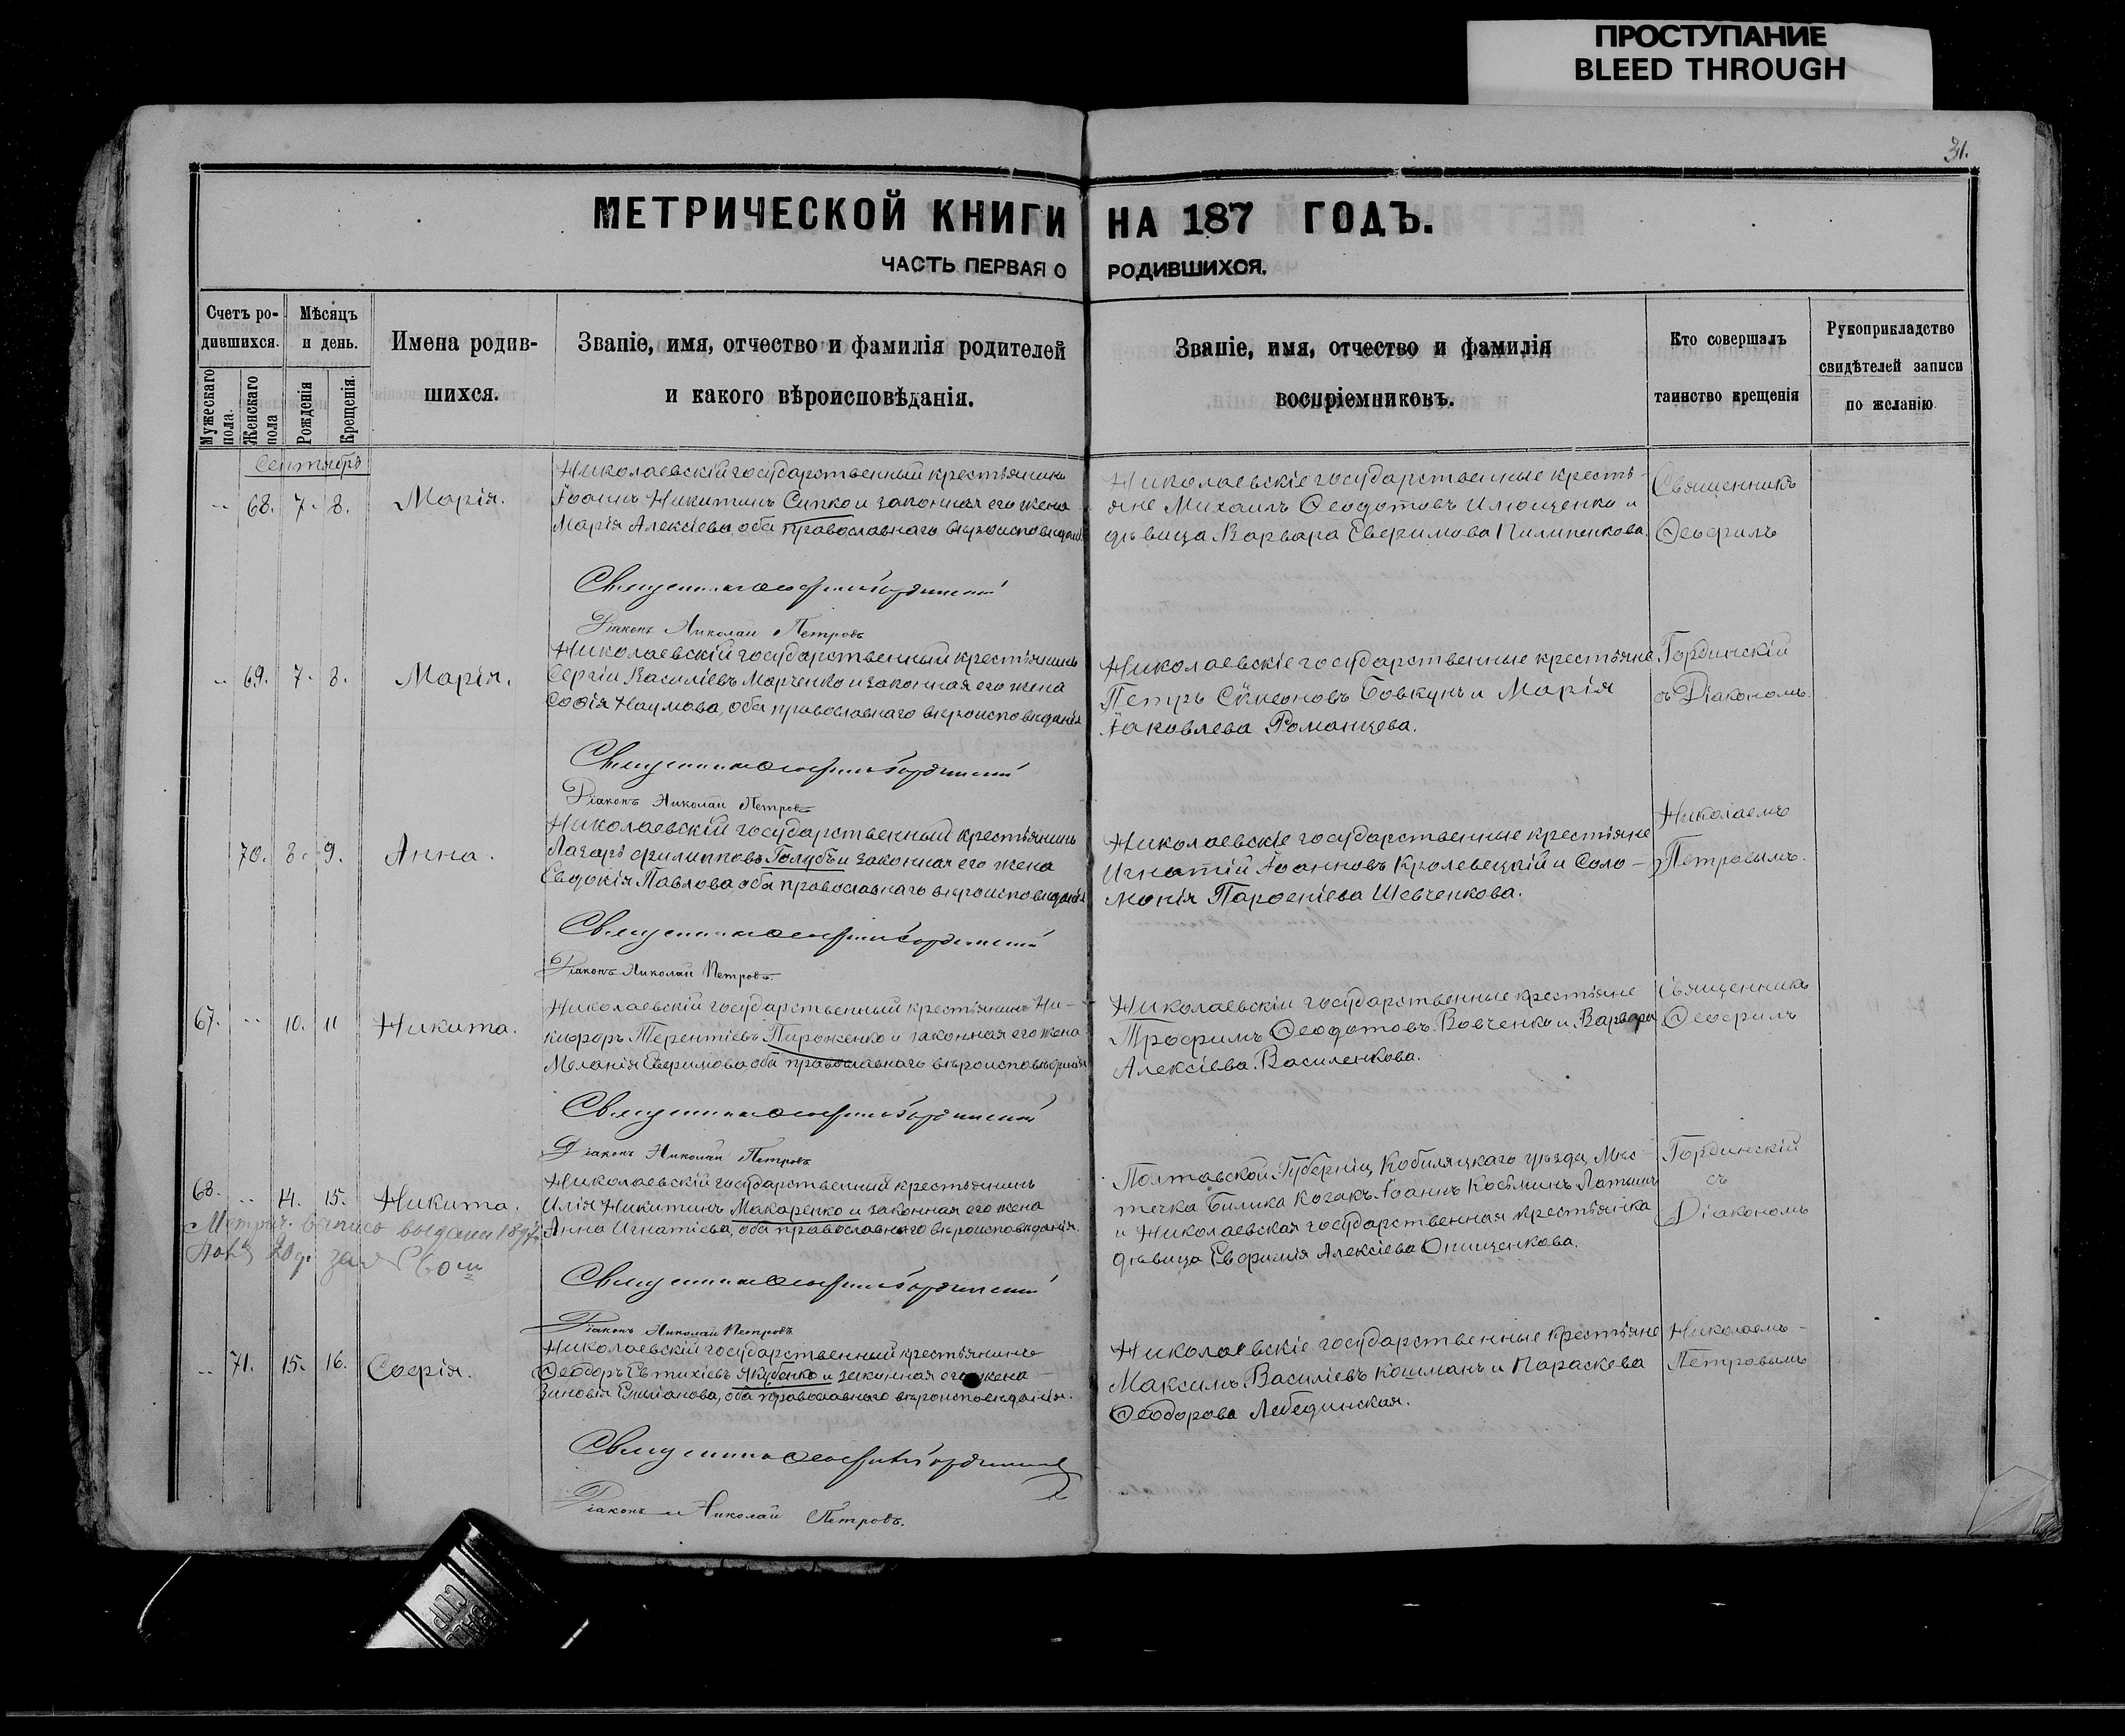 ПРОСТУПАНИЕ
BLEED THROUGH
31.
МЕТРИЧЕСКОЙ КНИГИ НА 187 ГОДЪ.
ЧАСТЬ ПЕРВАЯ О РОДИВШИХСЯ.
Счетъ ро-
дившихся.
Мужескаго пола.
Женскаго пола
Мѣсяцъ
и день.
Рожденія
Крещенія.
Имена родив-
шихся.
Званіе, имя, отчество и фамилія родителей
и какого вѣроисповѣданія.
Званіе, имя, отчество и фамилія
воспріемниковъ.
Кто совершалъ
таинство крещенія
Рукоприкладство
свидѣтелей записи
по желанію
Сентябрь
68. 7. 8. Марія.
Николаевскій государственный крестьянинъ
Іоаннъ Никитинъ Сипко и законная его жена
Марія Алексіева, оба православнаго вѣроисповѣданія
Николаевскіе государственные кресть-
яне Михаилъ Ѳеодотовъ Илющенко и
дѣвица Варвара Евѳимова Пилипенкова.
Священникъ
Ѳеофилъ
Діаконъ Николай Петровъ
69. 7. 8. Марія.
Николаевскій государственный крестьянинъ
Сергій Василіевъ Марченко и законная его жена
Софія Наумова, оба православнаго вѣроисповѣданія
Николаевскіе государственные крестьяне
Петръ Сѵмеоновъ Бовкунъ и Марія
Іаковлева Романцева.
Гординскій
съ Діакономъ
Діаконъ Николай Петровъ
70. 8. 9. Анна.
Николаевскій государственный крестьянинъ
Лазарь Филипповъ Голубъ и законная его жена
Евдокія Павлова оба православнаго вѣроисповѣданія
Николаевскіе государственные крестьяне
Игнатій Іоанновъ Кролевецкій и Соло-
монія Парѳеніева Шевченкова.
Николаемъ
Петровымъ.
Діаконъ Николай Петровъ.
67. 10. 11 Никита.
Николаевскій государственный крестьянинъ Ни-
кифоръ Терентіевъ Пироженко и законная его жена
Меланія Евѳимова, оба православнаго вѣроисповѣданія
Николаевскіи государственные крестьяне
Трофимъ Ѳеодотовъ Вовченко и Варвара
Алексіева Василенкова.
Священникъ
Ѳеофилъ
Діаконъ Николай Петровъ
68. 14. 15. Никита.
Николаевскій государственный крестьянинъ
Илія Никитинъ Макаренко и законная его жена
Анна Игнатіева, оба православнаго вѣроисповѣданія.
Полтавской Губерніи, Кобиляцкаго уѣзда, Мѣс-
течка Билика Козакъ Іоаннъ Косьминъ
и Николаевская государственная крестьянка
дѣвица Евфимія Алексіева Онищенкова.
Гординскій
съ
Діакономъ
Метрич. запись выдана 1897
Діаконъ Николай Петровъ
71. 15. 16. Софія.
Николаевскій государственный крестьянинъ
Ѳеодоръ Евтихіевъ Якубенко и законная его жена
Зиновія Емиліанова, оба православнаго вѣроисповѣданія.
Николаевскіе государственные крестьяне
Максимъ Василіевъ Кошманъ и Параскева
Ѳеодорова Лебединская.
Николаемъ
Петровымъ
Діаконъ Николай Петровъ.